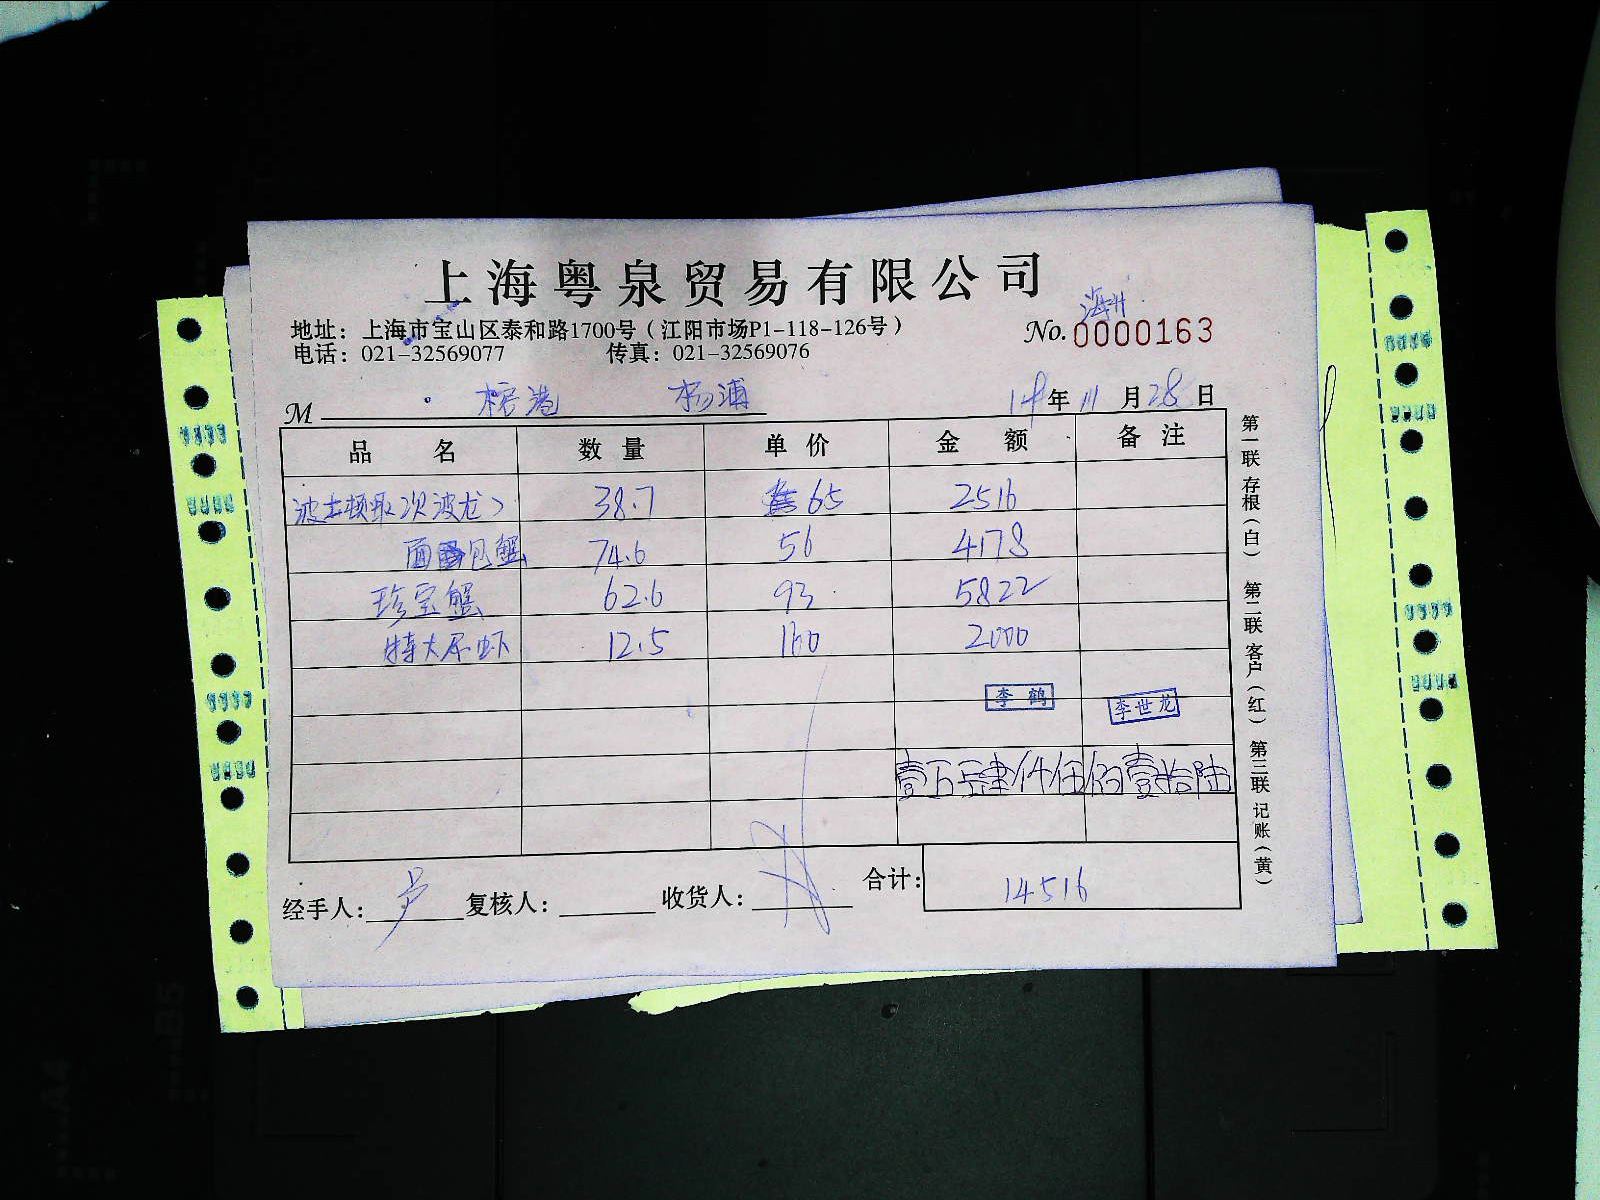 上海粤泉贸易有限公司
地址：上海市宝山区泰和路1700号（江阳市场P1-118-126号）
电话：021-32569077 传真：021-32569076
No.0000163
M 榕港 杨浦 14年11月28日
品名 数量 单价 金额 备注
波士顿敢 次波龙 38.7 65 2516
面包蟹 74.6 56 4178
珍宝蟹 62.6 93 5822
特大尿虾 12.5 160 2000
李鹤 李世龙
壹万肆仟伍佰壹拾陆
经手人： 复核人： 收货人： 合计：14516
第一联 存根（白） 第二联 客户（红） 第三联 记账（黄）